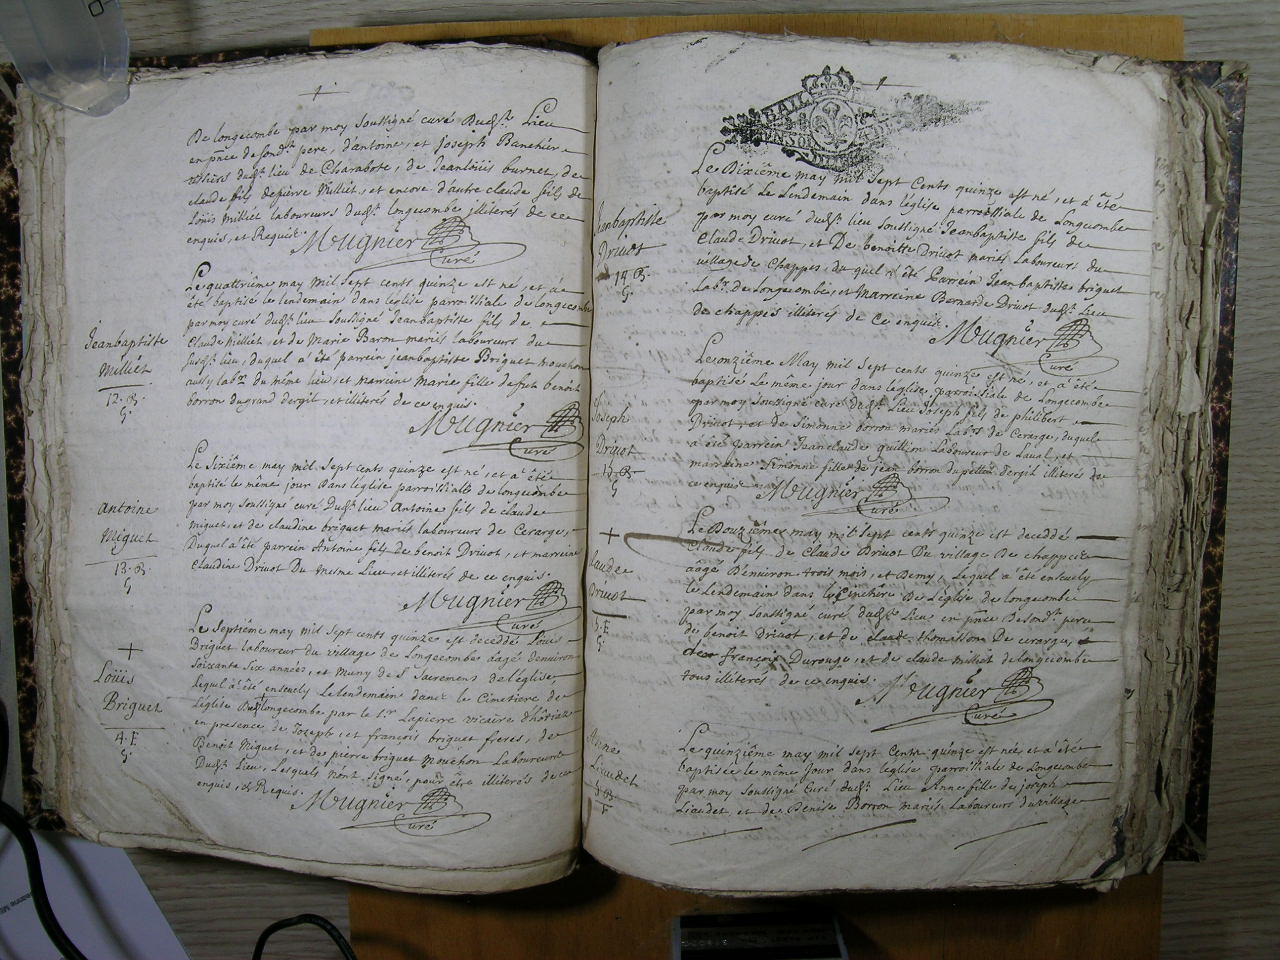 De longecombe par moy soussigné curé dudt. Lieu
en pnce de sondt. pere, d'antoine, et Joseph Banchier
dudt. lieu de Charabote, de Jeanloüis burnet, de
claude fils de pierre Milliet, et encore d'autre claude fils de
Loüis Milliet laboureurs dudt. longecombe illiterés de ce
enquis, et Requis. Mugnier
Curé
Le quatriême may mil sept cents quinze est né, et a
êté baptisé le lendemain dans leglise parroissiale de longecombe
par moy curé dudt. lieu soussigné Jeanbaptiste fils de
claude Milliet, et de Marie Baron mariés laboureurs du
susdt. lieu, duquel a êté parrein jeanbaptiste Briguet mouchon
aussy labr. du même lieu, et marreine marie fille de fut benoit
borron du grand dergit, et illiterés de ce enquis.
Jeanbaptiste
Milliet
12. B.
G.
Mugnier
Curé
Le Sixiême may mil Sept cents quinze est né, et a êté
baptisé le même jour dans leglise parroissialle de longecombe
par moy soussigné curé dudt. lieu Antoine fils de claude
miguet, et de claudine briguet mariés laboureurs de Cerarge,
Duquel a êté parrein Antoine fils de benoit Drivot, et marreine
Claudine Drivot Du mesme Lieu, et illiterés de ce enquis.
Antoine
Miguet
13. B.
G
Mugnier
Curé
Le Septiême may mil sept cents quinze est decedé Loüis
Briguet laboureur du village de Longecombe aagé denuiron
soixante six années, et muny des st. Sacremens de leglise,
lequel a êté enseuely Le lendemain dans le Cimetiere de
Léglise De longecombe par le sr. Lapierre vicaire d'hôriaz
en presence de Joseph, et françois briguet freres, de
Benoit Miguet, et de pierre briguet Mouchon Laboureurs
Dudt. Lieu, Lesquels n'ont signé, pour être illiterés de ce
enquis, & Requis. Mugnier
Curé
+
Loüis
Briguet
4. E
G.
Le Dixiême may mil sept Cents quinze est né, et a êté
baptisé Le Lendemain dans leglise parroissiale de Longecombe
par moy curé dudt. lieu soussigné Jeanbaptiste fils de
Claude Drivot, et De benoitte Drivot mariés Laboureurs du
village de Chappes, du quel a êté Parrein Jeanbaptiste briguet
Labr. de Longecombe, et marreine Bernarde Drivot dudt. Lieu
de chappes illiterés de Ce enquis. Mugnier
Curé
Jeanbaptiste
Drivot
14 B.
G.
Le onziême May mil Sept cents quinze est né, et a êté
baptisé Le meme jour dans leglise parroissiale de Longecombe
par moy soussigné curé dudt. Lieu Joseph fils de philibert
Drivot, et de Simonne borron mariés Labrs. de Cerarge, duquel
a êté parrein Jeanclaude quillion Laboureur de Laval, et
marreine Simonne fille de jean borron du petitau dergit illiterés de
ce enquis Mugnier
Curé
Joseph
Drivot
15. B.
G
Le Douziême may mil sept cents quinze est decedé
Claude fils de Claude Drivot Du village De chappes
aagé D'enuiron trois mois, et Demy, Lequel a êté enseuely
le Lendemain dans le Cimetiere De Leglise de longecombe
par moy soussigné curé dudt. Lieu en pnce De sondt. pere
de benoit Drivot, et de thomasson De cerarge,
françois Durouge, et de claude milliet de longecombe
tous illiterés de ce enquis. Mugnier
Curé
+
Claude
Drivot
5. E
G.
Le quinziême may mil sept Cents quinze est née, et a êté
baptisée le même Jour dans leglise parroissiale de Longecombe
par moy soussigné Curé dudt. Lieu Anne fille de joseph
Liaudet, et de Denise Borron mariés Laboureurs du village
Anne
Liaudet